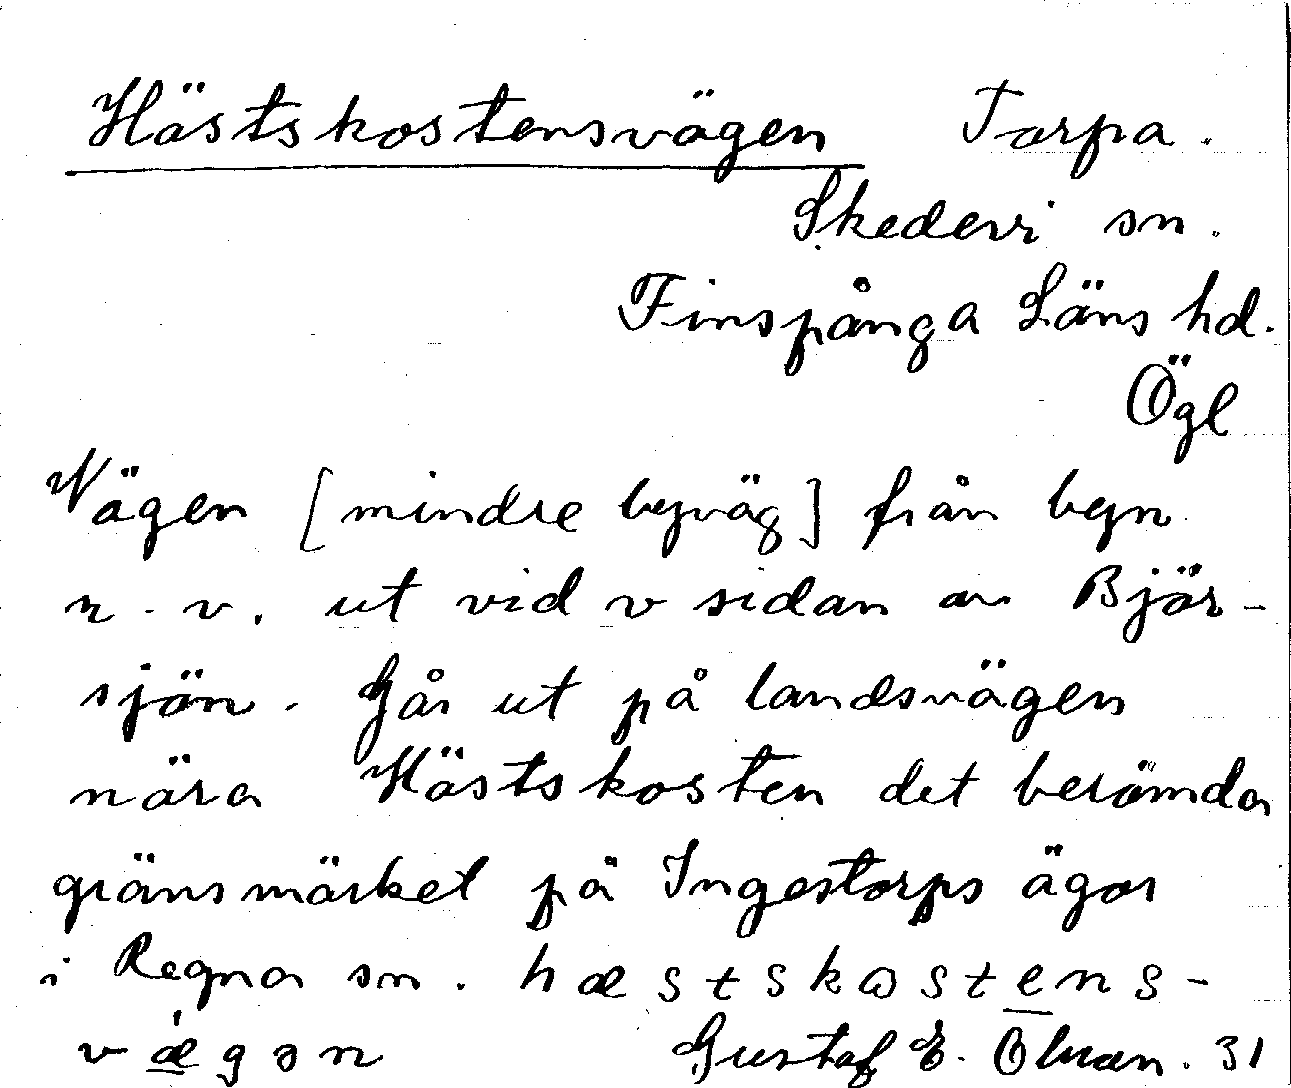 Hästskostensvägen Torpa.
Skedevi sn.
Finspånga Läns hd.
Ögl
Vägen [mindre byväg] från byn
n.v. ut vid v sidan av Björ-
sjön. Går ut på landsvägen
nära Hästskosten det berömda
gränsmärket på Ingestorps ägor
i Regna sn. hæstskostens-
vægən Gustaf E. Öhman. 31